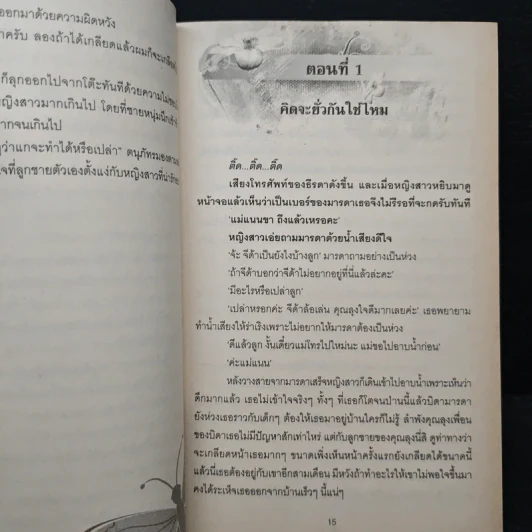 ออกมาด้วยความผิดหวัง
าครับ ลองถ้าได้เกลียดแล้วผมก็จะเกลียด
ก็ลุกออกไปจากโต๊ะทันทีด้วยความไม่
หญิงสาวมากเกินไป โดยที่ชายหนุ่มนึก
ากจนเกินไป
ว่าแกจะทำได้หรือเปล่า” ดนุภัทรมอง
ใจที่ลูกชายตัวเองตั้งแง่กับหญิงสาวที่น่ารัก
ตอนที่ 1
คิดจะยั่วกันใช่ไหม
ติ๊ด...ติ๊ด...ติ๊ด
เสียงโทรศัพท์ของธีรดาดังขึ้น และเมื่อหญิงสาวหยิบมาดู
หน้าจอแล้วเห็นว่าเป็นเบอร์ของมารดาเธอจึงไม่รีรอที่จะกดรับทันที
‘แม่แนนขา ถึงแล้วเหรอคะ’
หญิงสาวเอ่ยถามมารดาด้วยน้ำเสียงดีใจ
‘จ้ะ จีด้าเป็นยังไงบ้างลูก’ มารดาถามอย่างเป็นห่วง
‘ถ้าจีด้าบอกว่าจีด้าไม่อยากอยู่ที่นี่แล้วล่ะคะ’
‘มีอะไรหรือเปล่าลูก’
‘เปล่าหรอกค่ะ จีด้าล้อเล่น คุณลุงใจดีมากเลยค่ะ’ เธอพยายาม
ทำน้ำเสียงให้ร่าเริงเพราะไม่อยากให้มารดาต้องเป็นห่วง
‘ดีแล้วลูก งั้นเดี๋ยวแม่โทรไปใหม่นะ แม่ขอไปอาบน้ำก่อน’
‘ค่ะแม่แนน’
หลังวางสายจากมารดาเสร็จหญิงสาวก็เดินเข้าไปอาบน้ำเพราะเห็นว่า
ดึกมากแล้ว เธอไม่เข้าใจจริงๆ ทั้งๆ ที่เธอก็โตจนป่านนี้แล้วบิดามารดา
ยังห่วงเธอราวกับเด็กๆ ต้องให้เธอมาอยู่บ้านใครก็ไม่รู้ ลำพังคุณลุงเพื่อน
ของบิดาเธอไม่มีปัญหาสักเท่าไหร่ แต่กับลูกชายของคุณลุงนี่สิ ดูท่าทางว่า
จะเกลียดหน้าเธอมากๆ ขนาดเพิ่งเห็นหน้าครั้งแรกยังเกลียดได้ขนาดนี้
แล้วนี่เธอต้องอยู่กับเขาอีกสามเดือน มีหวังถ้าทำอะไรให้เขาไม่พอใจขึ้นมา
คงได้ระเห็จเธอออกจากบ้านเร็วๆ นี้แน่ๆ
15